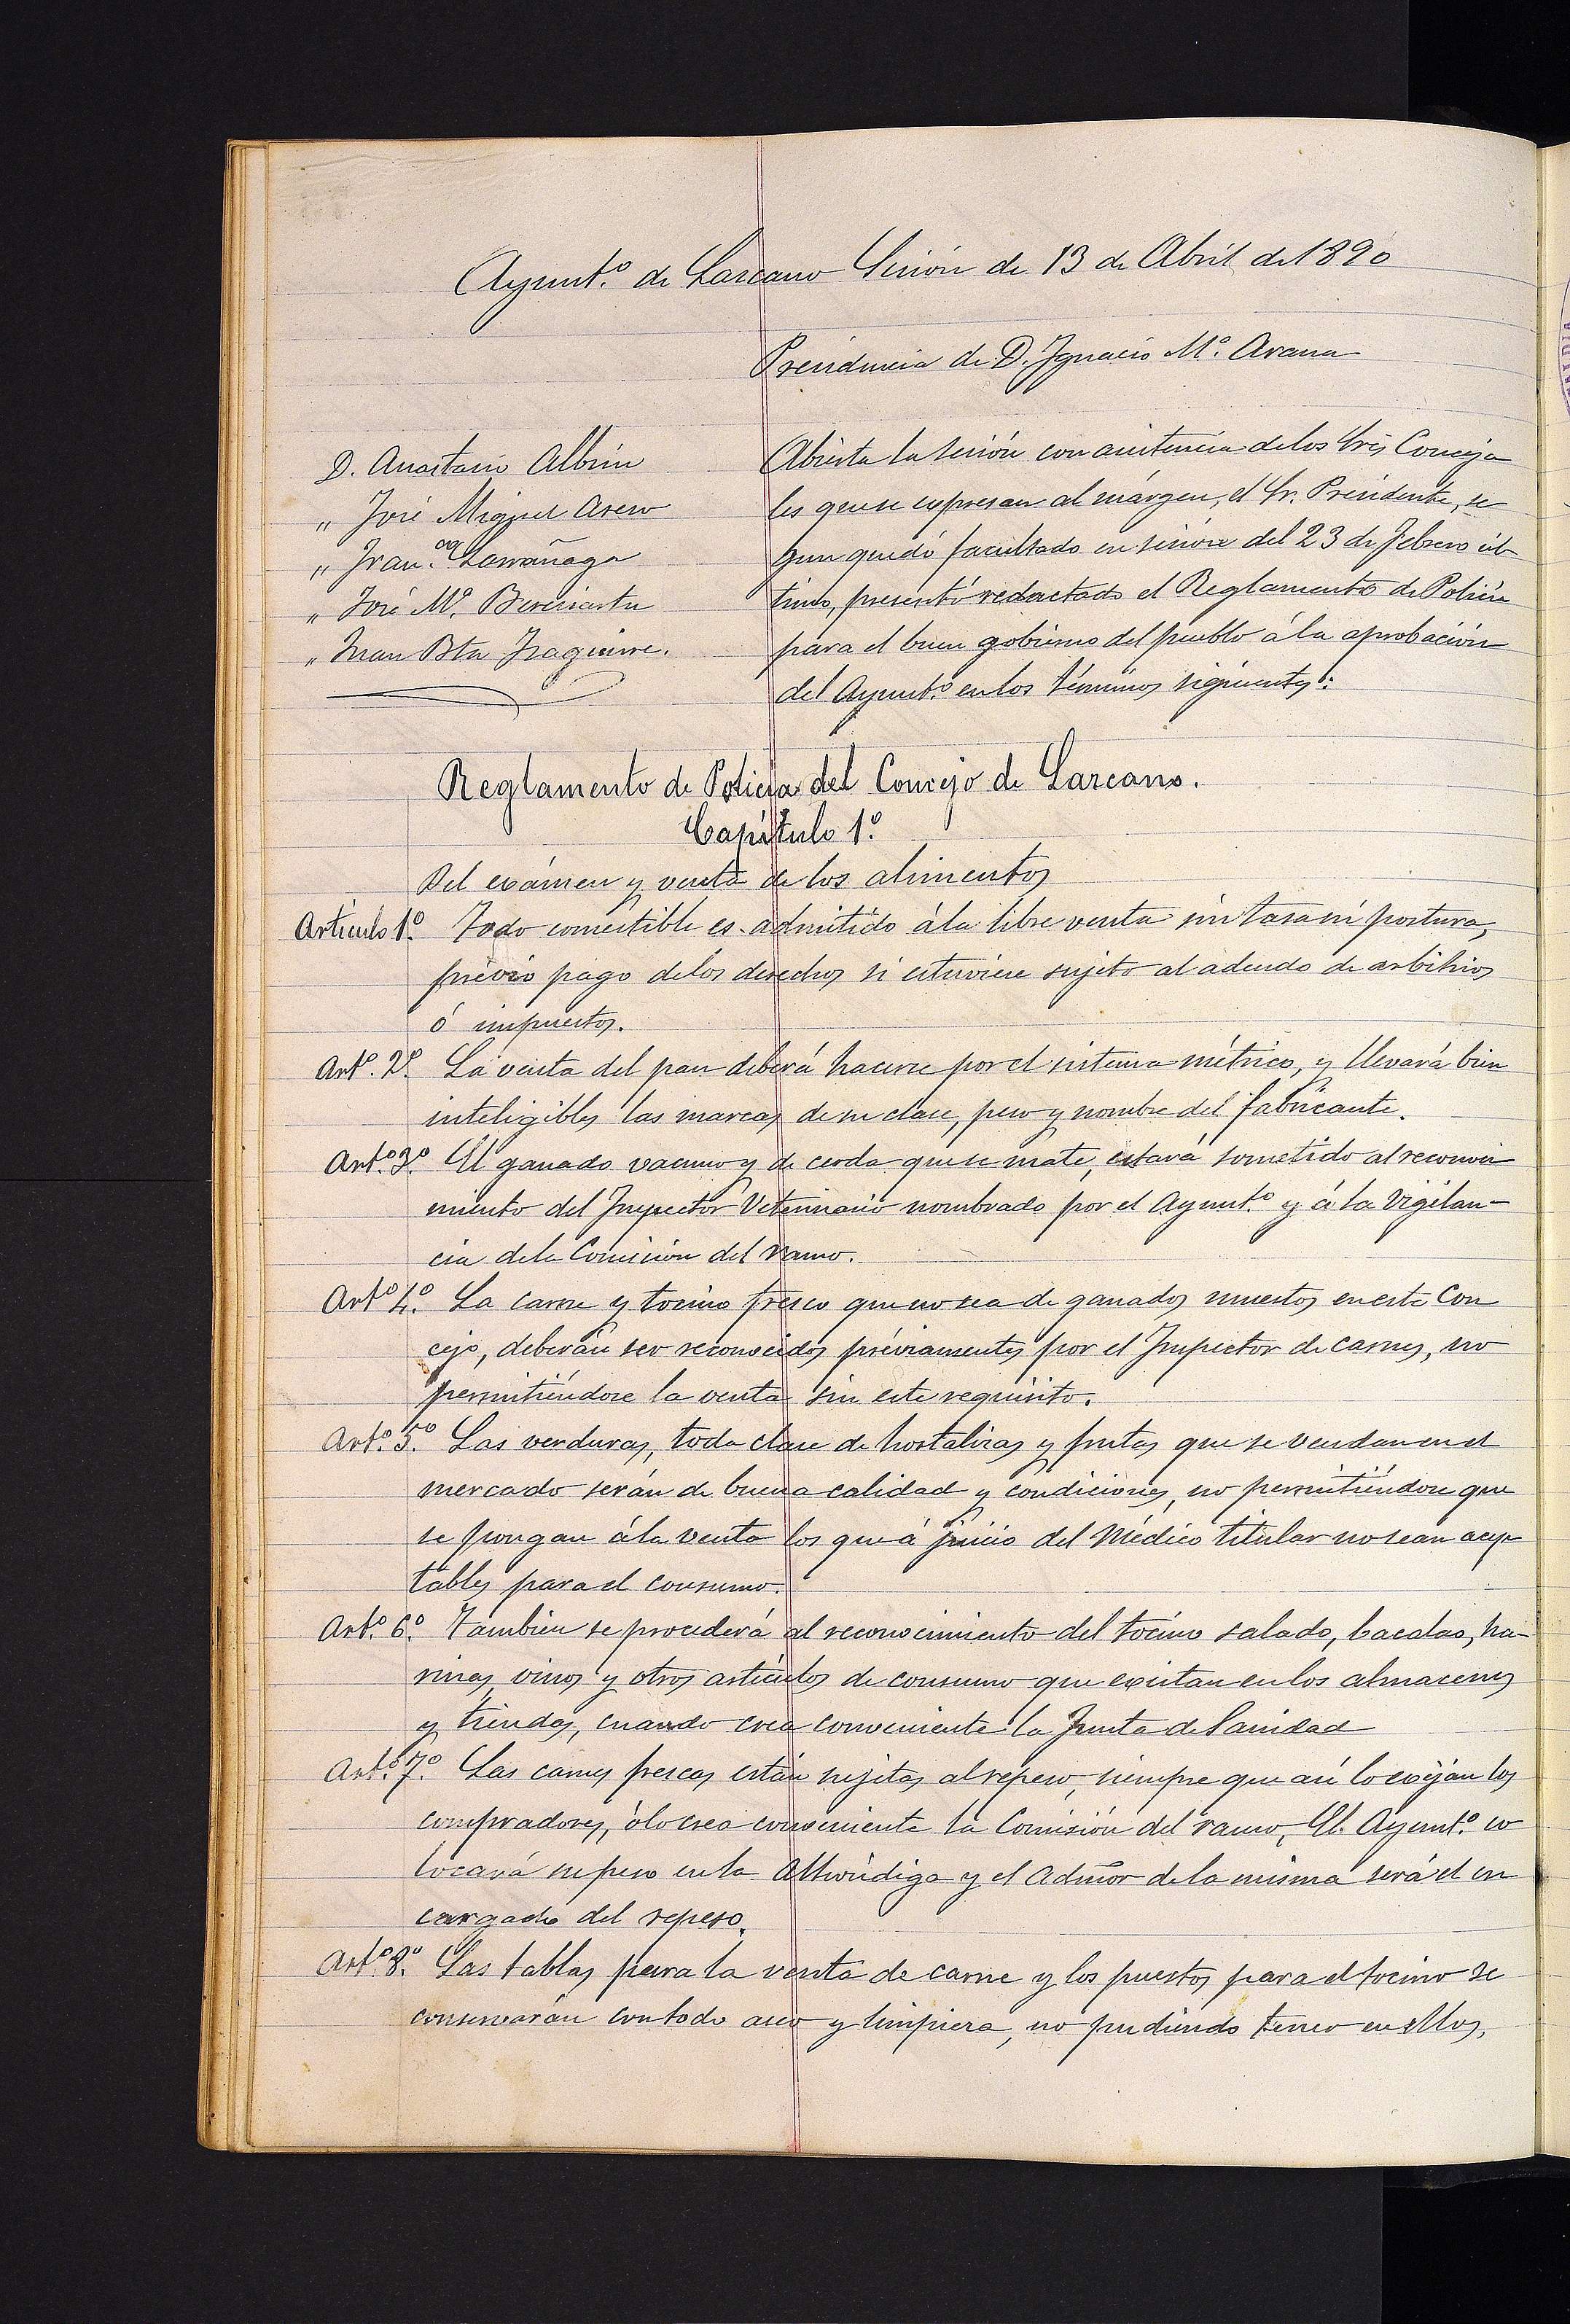 Ayunt.º de Lazcano Sesión de 13 de Abril de 1890
Presidencia de D. Ignacio M.ª Arana
D. Anastasio Albisu
„ José Miguel Aseso
„ Fran.co Larrañaga
„ José M.ª Beresiartu
„ Juan Bta Izaguirre.
Abierta la sesión con asistencia de los Sres Conceja
les que se expresan al márgen, el Sr. Presidente, se
gun quedó facultado en sesión del 23 de Febrero úl-
timo, presentó redactado el Reglamento de Policía
para el buen gobierno del pueblo á la aprobación
del Ayunt.º en los términos siguientes:
Reglamento de Policía del Concejo de Lazcano.
Capítulo 1.º
Del exámen y venta de los alimentos
Artículo 1.º Todo comestible es admitido á la libre venta sin tasa ni postura,
prévio pago de los derechos si estuviere sujeto al adeudo de arbitrios
ó impuestos.
Art.º 2.º La venta del pan deberá hacerse por el sistema métrico, y llevará bien
inteligibles las marcas de su clase, peso y nombre del fabricante.
Art.º 3.º El ganado vacuno y de cerda que se mate, estará sometido al reconoci
miento del Inspector Veterinario nombrado por el Ayunt.º y á la Vigilan-
cia de la Comisión del ramo.
Art.º 4.º La carne y tocino fresco que no sea de ganados muertos en este Con
cejo, deberán ser reconocidos préviamentes por el Inspector de carnes, no
permitiéndose la venta sin este requisito.
Art.º 5.º Las verduras, toda clase de hortalizas y frutas que se vendan en el
mercado serán de buena calidad y condiciones, no permitiéndose que
se pongan á la venta los que á juicio del Médico titular no sean acep
tables para el consumo.
Art.º 6.º Tambien se procederá al reconocimiento del tocino salado, bacalao, ha-
rinas, vinos y otros artículos de consumo que existan en los almacenes
y tiendas, cuando crea conveniente la Junta de Sanidad
Art.º 7.º Las carnes frescas están sujetas al repeso, siempre que así lo exijan los
compradores, ó lo crea conveniente la Comisión del ramo, El Ayunt.º co
locará su peso en la Alhóndiga y el Admor de la misma será el en
cargado del repeso.
Art.º 8.º Las tablas para la venta de carne y los puestos para el tocino se
conservarán con todo aseo y limpieza, no pudiendo tener en ellos,